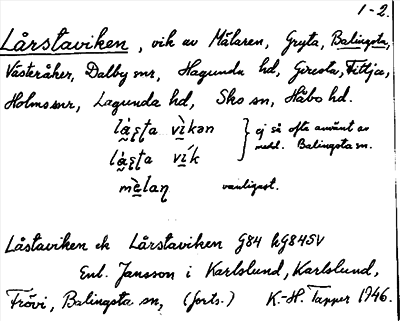 1-2.
Lårstaviken, vik av Mälaren, Gryta, Balingsta,
Västeråker, Dalby snr, Hagunda hd, Giresta, Fittja,
Holms snr, Lagunda hd, Sko sn, Håbo hd.
vìkən } ej så ofta använt av
vík medd. Balingsta sn.
vanligast.
Låstaviken ek Lårstaviken G84 hG84SV
Enl. Jansson i Karlslund, Karlslund,
Frövi, Balingsta sn, (forts.) K.-H. Tapper 1946.